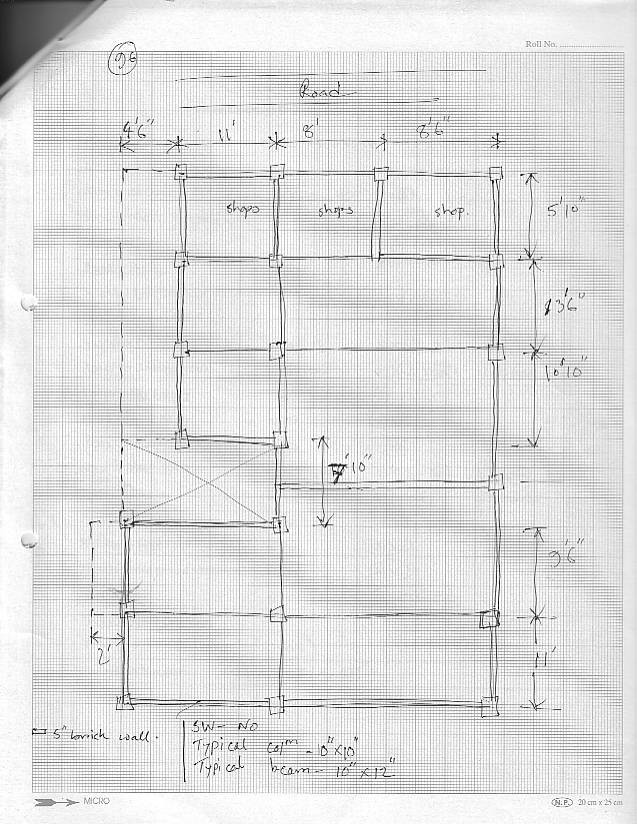 Roll No.
96
Road
4'6" 11' 8' 8'6"
shops shops shop.
5'10"
13'6"
10'10"
7'10"
9'6"
2'
11'
5" brick wall.
SW- NO
Typical colm - 10"x10"
Typical beam - 10"x12"
MICRO
N.P. 20 cm x 25 cm